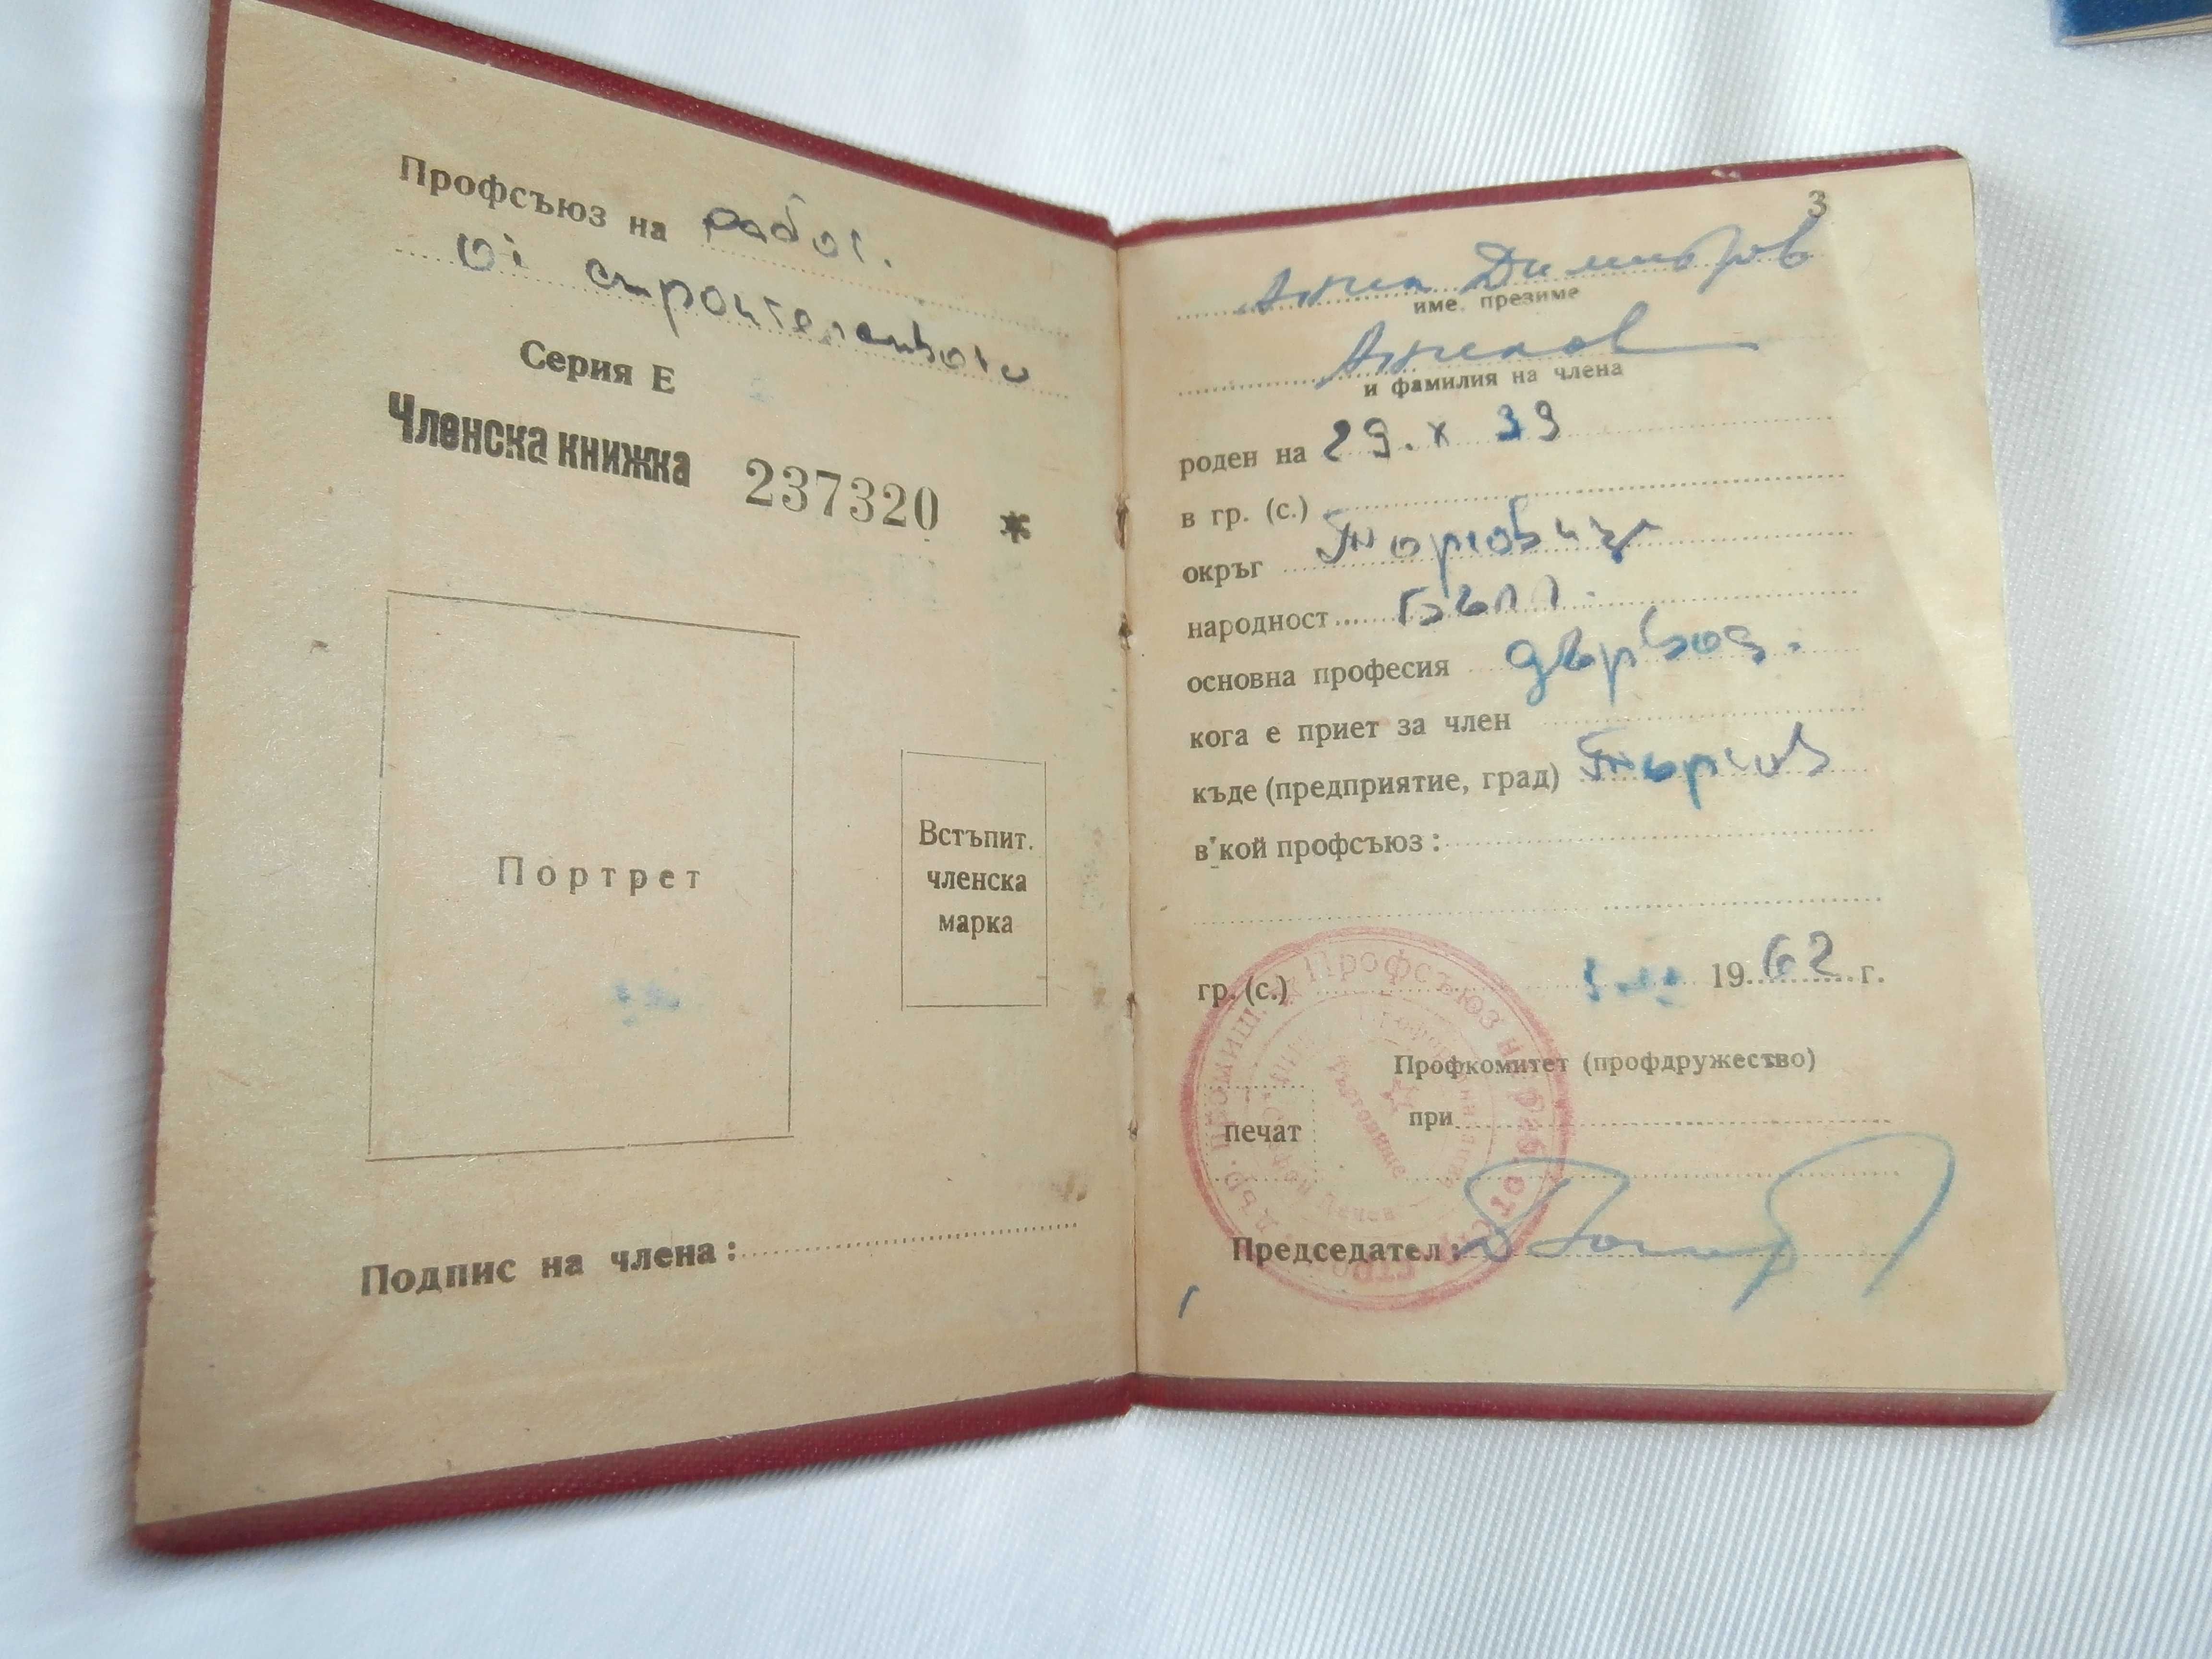 Профсъюз на работ.
от строителството
Серия Е
Членска книжка 237320 *
Портрет
Встъпит.
членска
марка
Подпис на члена:
3
Димитров
име, презиме
Ангелов
и фамилия на члена
роден на 29. X 39
в гр. (с.)
окръг Търговищ
народност бълг.
основна професия дървод.
кога е приет за член
къде (предприятие, град) Търгов
в кой профсъюз:
гр. (с.) 1962 г.
Профкомитет (профдружество)
при
печат
Председател:
Профсъюз на работ.